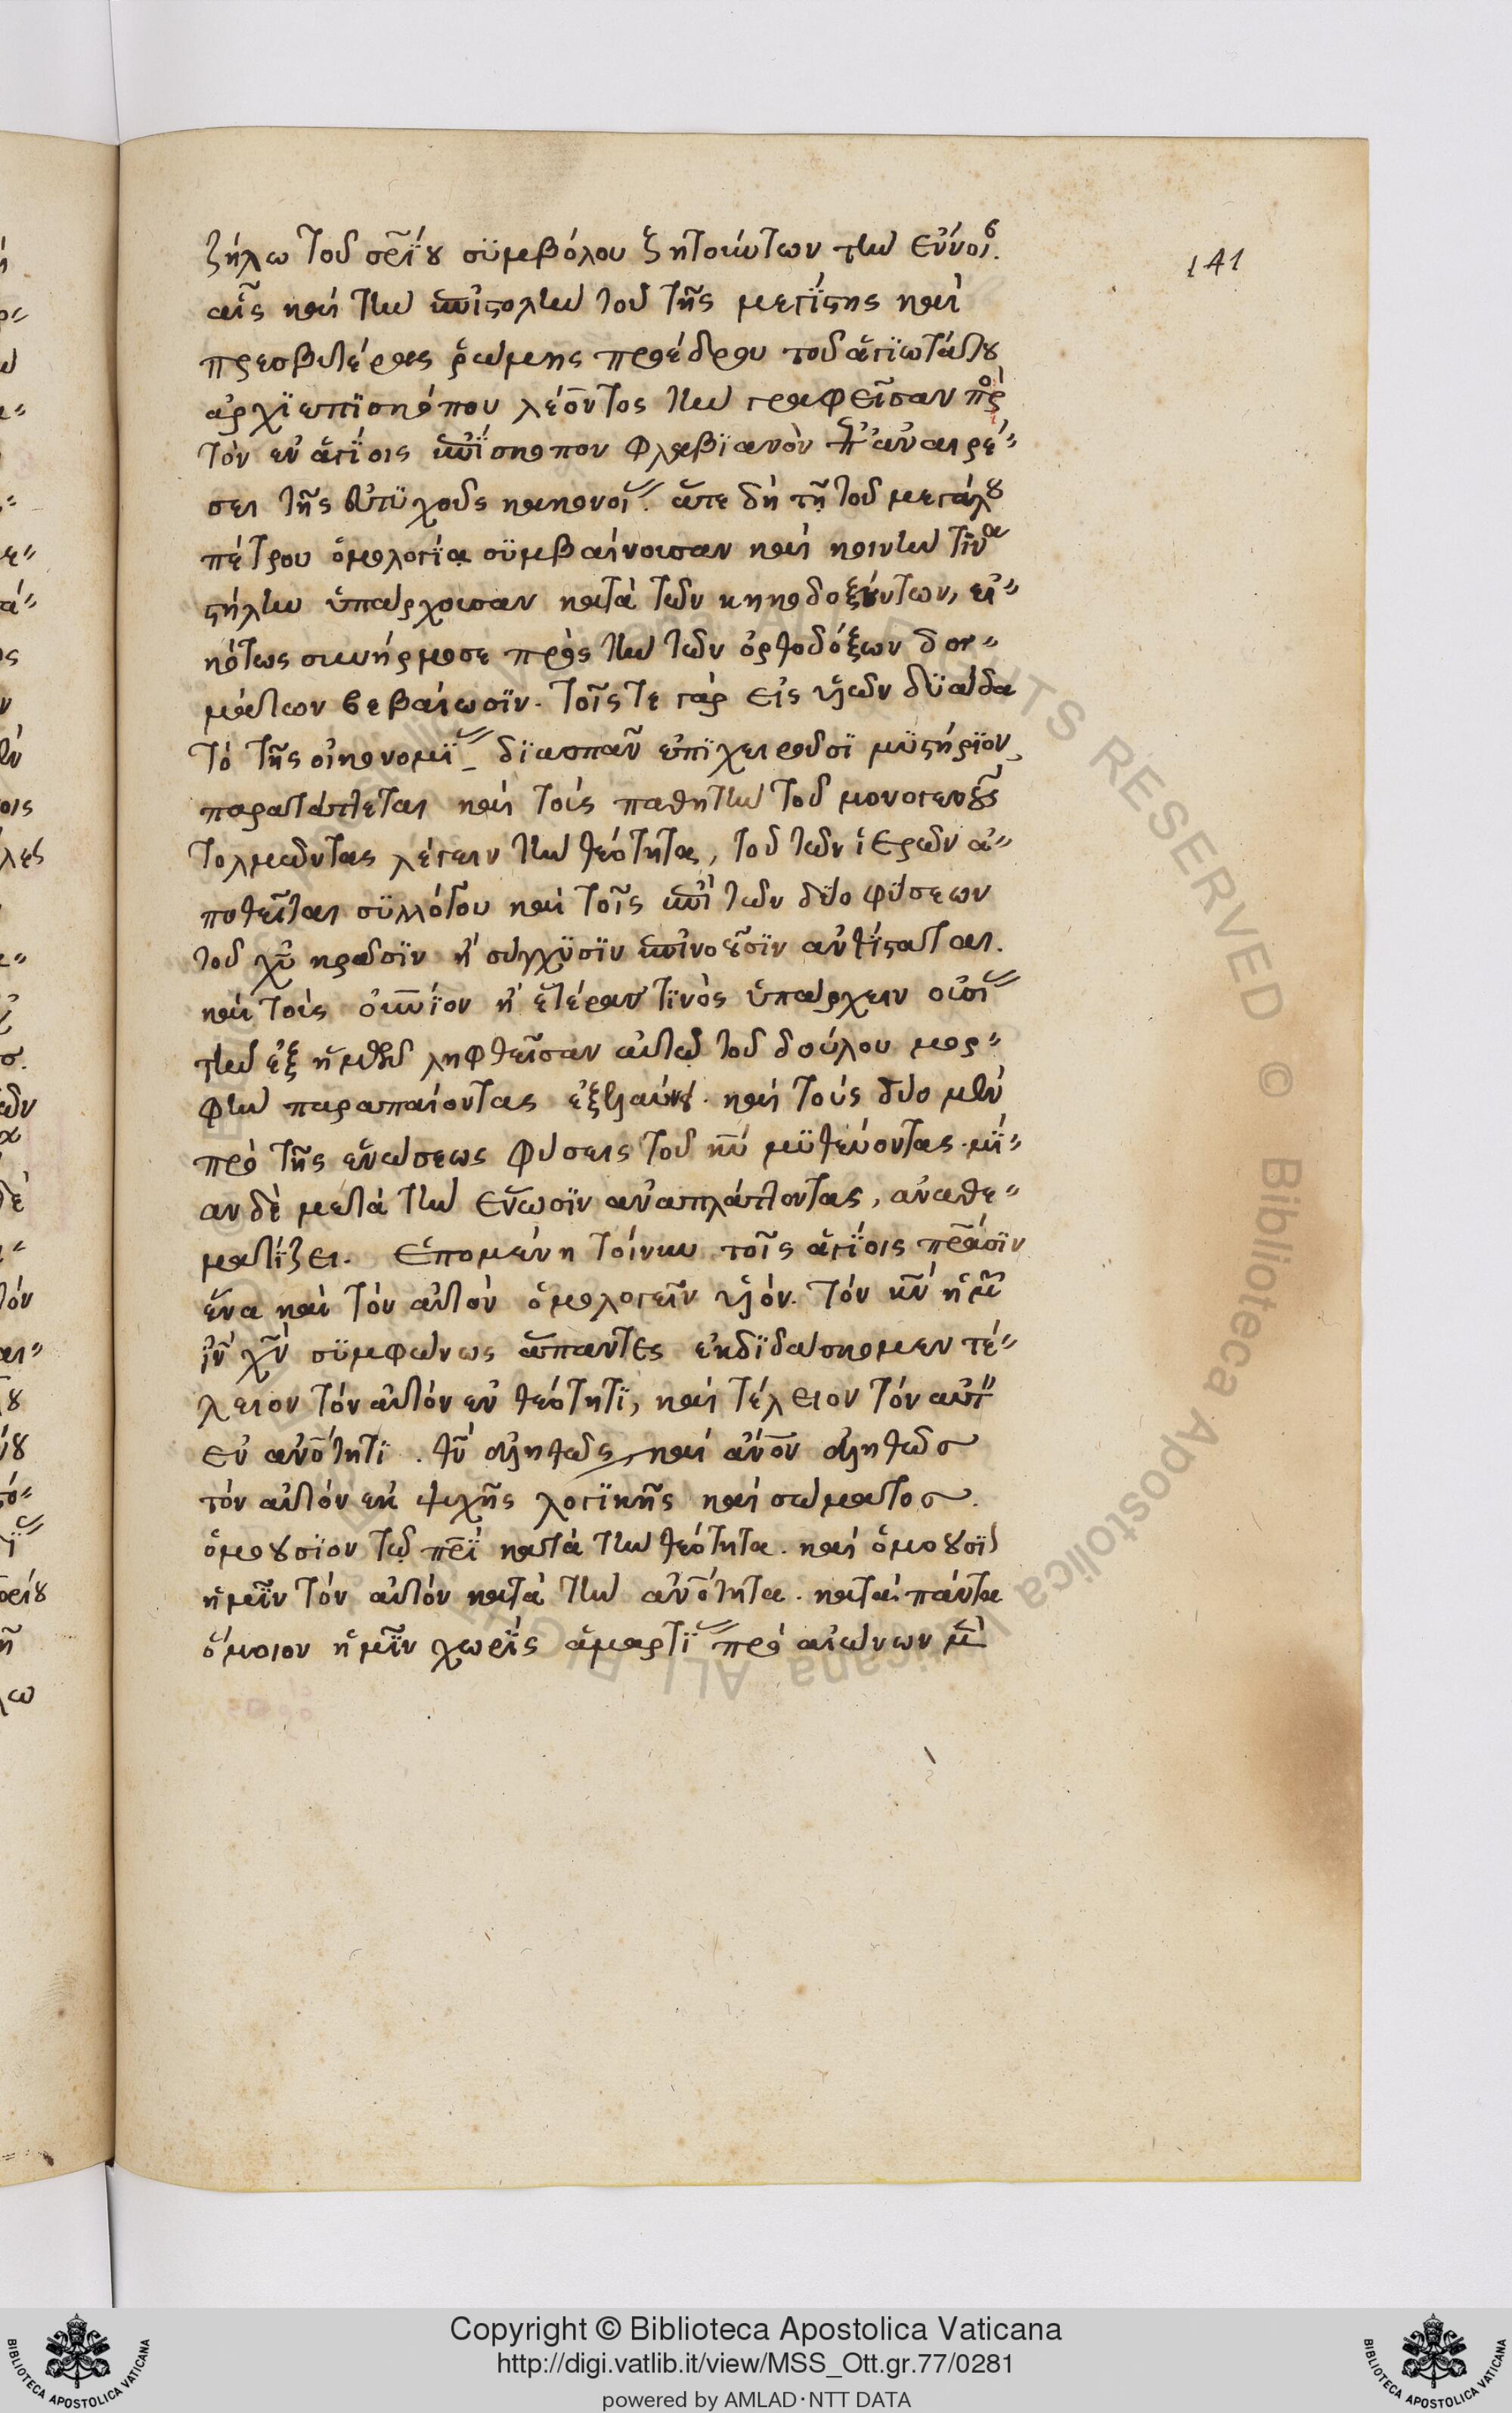 ζήλω τοῦ σρίου συμβόλου ζητούντων τὴν ἔννοι.
141
αἷς καὶ τὴν ἐπιστολὴν τοῦ τῆς μεγίστης καὶ
πρεσβυτέρας ῥώμης προέδρου τοῦ ἁγιωτάτου
ἀρχιεπισκόπου λέοντος τὴν γραφεῖσαν πρὸς
τὸν ἐν ἁγίοις ἐπίσκοπον φλαβιανὸν ἐπ' ἀναιρέ-
σει τῆς εὐτυχοῦς κακονοί. ἅτε δὴ τῇ τοῦ μεγάλου
πέτρου ὁμολογίᾳ συμβαίνουσαν καὶ κοινὴν τινα
στήλην ὑπάρχουσαν κατὰ τῶν κακοδοξούντων, εἰ-
κότως συνήρμοσε πρὸς τὴν τῶν ὀρθοδόξων δογ-
μάτων βεβαίωσιν. τοῖς τε γὰρ εἰς υἱῶν δυάδα
τὸ τῆς οἰκονομί διασπᾶν ἐπιχειροῦσι μυστήριον
παρατάττεται καὶ τοὺς παθητὴν τοῦ μονογενοῦς
τολμῶντας λέγειν τὴν θεότητα, τοῦ τῶν ἱερῶν ἀ-
ποθεῖται συλλόγου καὶ τοῖς ἐπὶ τῶν δύο φύσεων
τοῦ χυ κρᾶσιν ἢ σύγχυσιν ἐπινοοῦσιν ἀνθίσταται.
καὶ τοὺς οὐνιον ἢ ἑτέραν τινὸς ὑπάρχειν οὐσί
τὴν ἐξ ἡμῶν ληφθεῖσαν αὐτῷ τοῦ δούλου μορ-
φὴν παραπαίοντας ἐξελαύνει. καὶ τοὺς δύο μὲν
πρὸ τῆς ἑνώσεως φύσεις τοῦ κυ μυθεύοντας. μί-
αν δὲ μετὰ τὴν ἕνωσιν ἀναπλάττοντας, ἀναθε-
ματίζει. Ἑπομένη τοίνυν τοῖς ἁγίοις πράσιν
ἕνα καὶ τὸν αὐτὸν ὁμολογεῖν υἱόν. τὸν κν ἡμ
ιν χν συμφώνως ἅπαντες ἐκδιδάσκομεν τέ-
λειον τὸν αὐτὸν ἐν θεότητι, καὶ τέλειον τὸν αὐτ
ἐν ἀνότητι. θν ἀληθῶς καὶ ἄνον ἀληθῶς
τὸν αὐτὸν ἐκ ψυχῆς λογικῆς καὶ σώματος.
ὁμοούσιον τῷ πρι κατὰ τὴν θεότητα. καὶ ὁμοούσι
ἡμῖν τὸν αὐτὸν κατὰ τὴν ἀνότητα. κατὰ πάντα
ὅμοιον ἡμῖν χωρὶς ἁμαρτί πρὸ αἰώνων μὲν
Copyright © Biblioteca Apostolica Vaticana
http://digi.vatlib.it/view/MSS_Ott.gr.77/0281
powered by AMLAD·NTT DATA